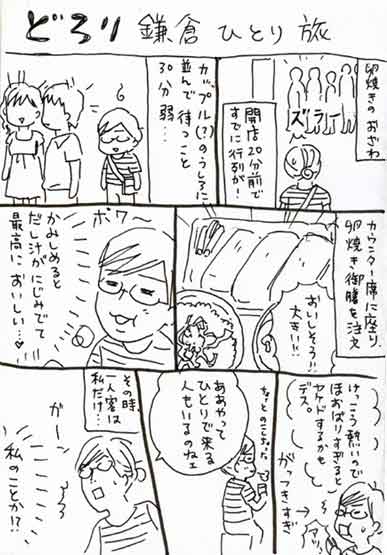 どろり鎌倉ひとり旅
卵焼きの おざわ
ズラーッ
開店20分前で
すでに行列が!
カップル(?)のうしろに
並んで待つこと
30分弱…
カウンター席に座り、
卵焼き御膳を注文
おいしそう!!
大きい!!
ポワ〜
かみしめると
だし汁がにじみでて
最高に おいしい…♡
けっこう熱いので
ほおばりすぎると
ヤケドするかも
デス。
がっつきすぎ
アツ
ああやって
ひとりで来る
人もいるのねェ
その時
一人客は
私だけ…
ガーン
私のことか!?